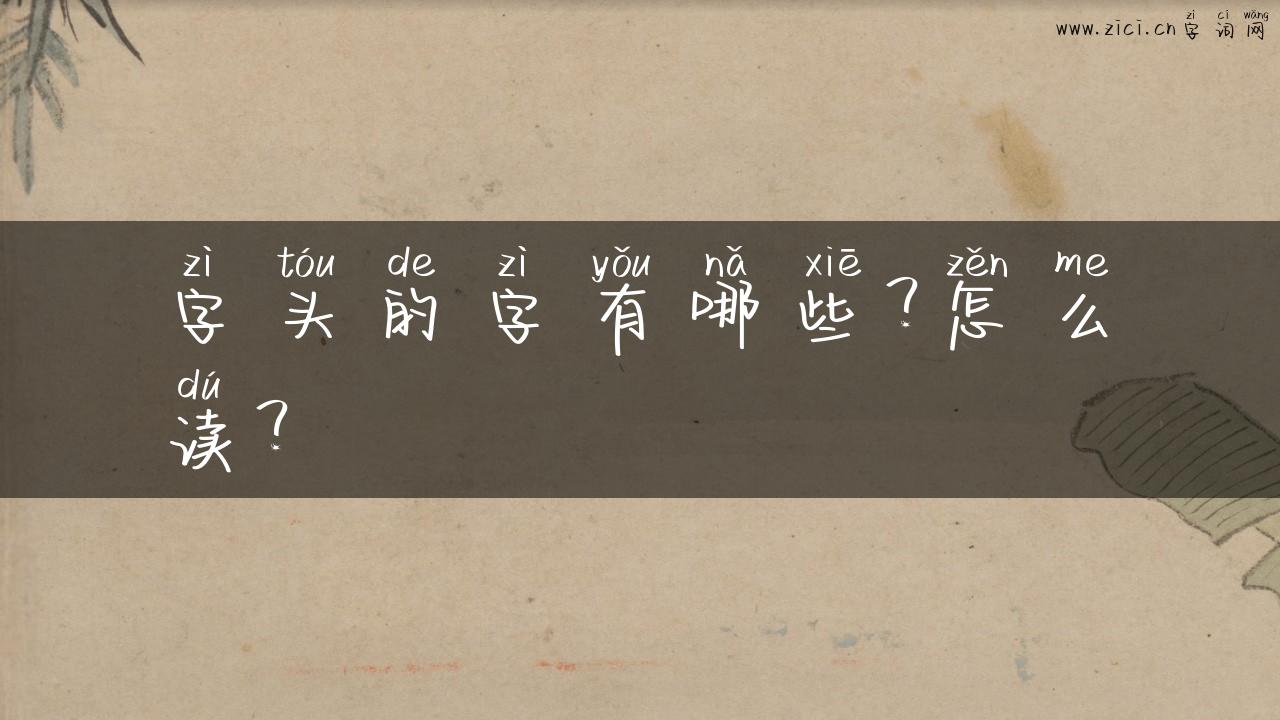 zì cí wǎng
www.zici.cn 字 词 网
zì tóu de zì yǒu nǎ xiē zěn me
字 头 的 字 有 哪 些 ? 怎 么
dú
读 ?